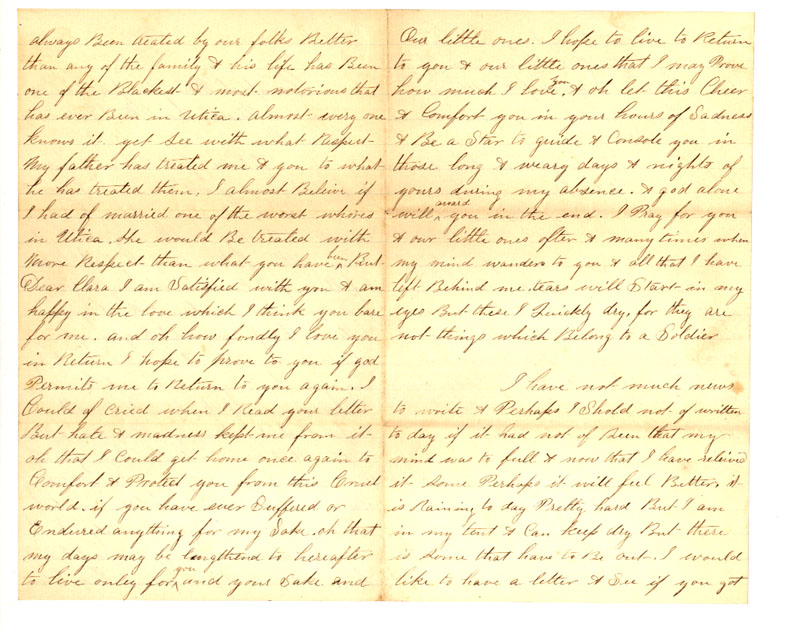 always Been treated by our folks Better
than any of the family & his life has Been
one of the Blackest & most notorious that
has ever Been in Utica. almost every one
knows it. yet see with what Respect
My father has treated me & you to what
he has treated them. I almost Beleive if
I had of married one of the worst whores
in Utica. She would Be treated with
More Respect than what you have been, But
Dear Clara I am Satisfied with you & am
happy in the love which I think you bare
for me. and oh how fondly I love you
in Return I hope to prove to you if god
Permits me to Return to you again. I
Could of cried when I Read your letter
But hate & madness kept me from it
oh that I Could get home once again to
Comfort & Protect you from this Cruel
world. if you have ever Suffered or
Endured anything for my Sake. oh that
my days may be lengthend to hereafter
to live onley for you and your Sake and
Our little ones. I hope to live to Return
to you & our little ones that I may Prove
how much I love you. & oh let this Cheer
& Comfort you in your hours of Sadness
& Be a Star to guide & Console you in
those long & weary days & nights of
yours during my absence. & god alone
will award you in the end. I Pray for you
& our little ones often & many times when
my mind wanders to you & all that I have
left Behind me. tears will Start in my
eyes But these I Quickly dry, for they are
not things which Belong to a Soldier
I have not much news
to write & Perhaps I Shold not of written
to day if it had not of Been that my
mind was to full & now that I have releived
it some Perhaps it will feel Better. it
is Raining to day Pretty hard But I am
in my tent & Can keep dry But there
is some that have to Be out. I would
like to have a letter & See if you got